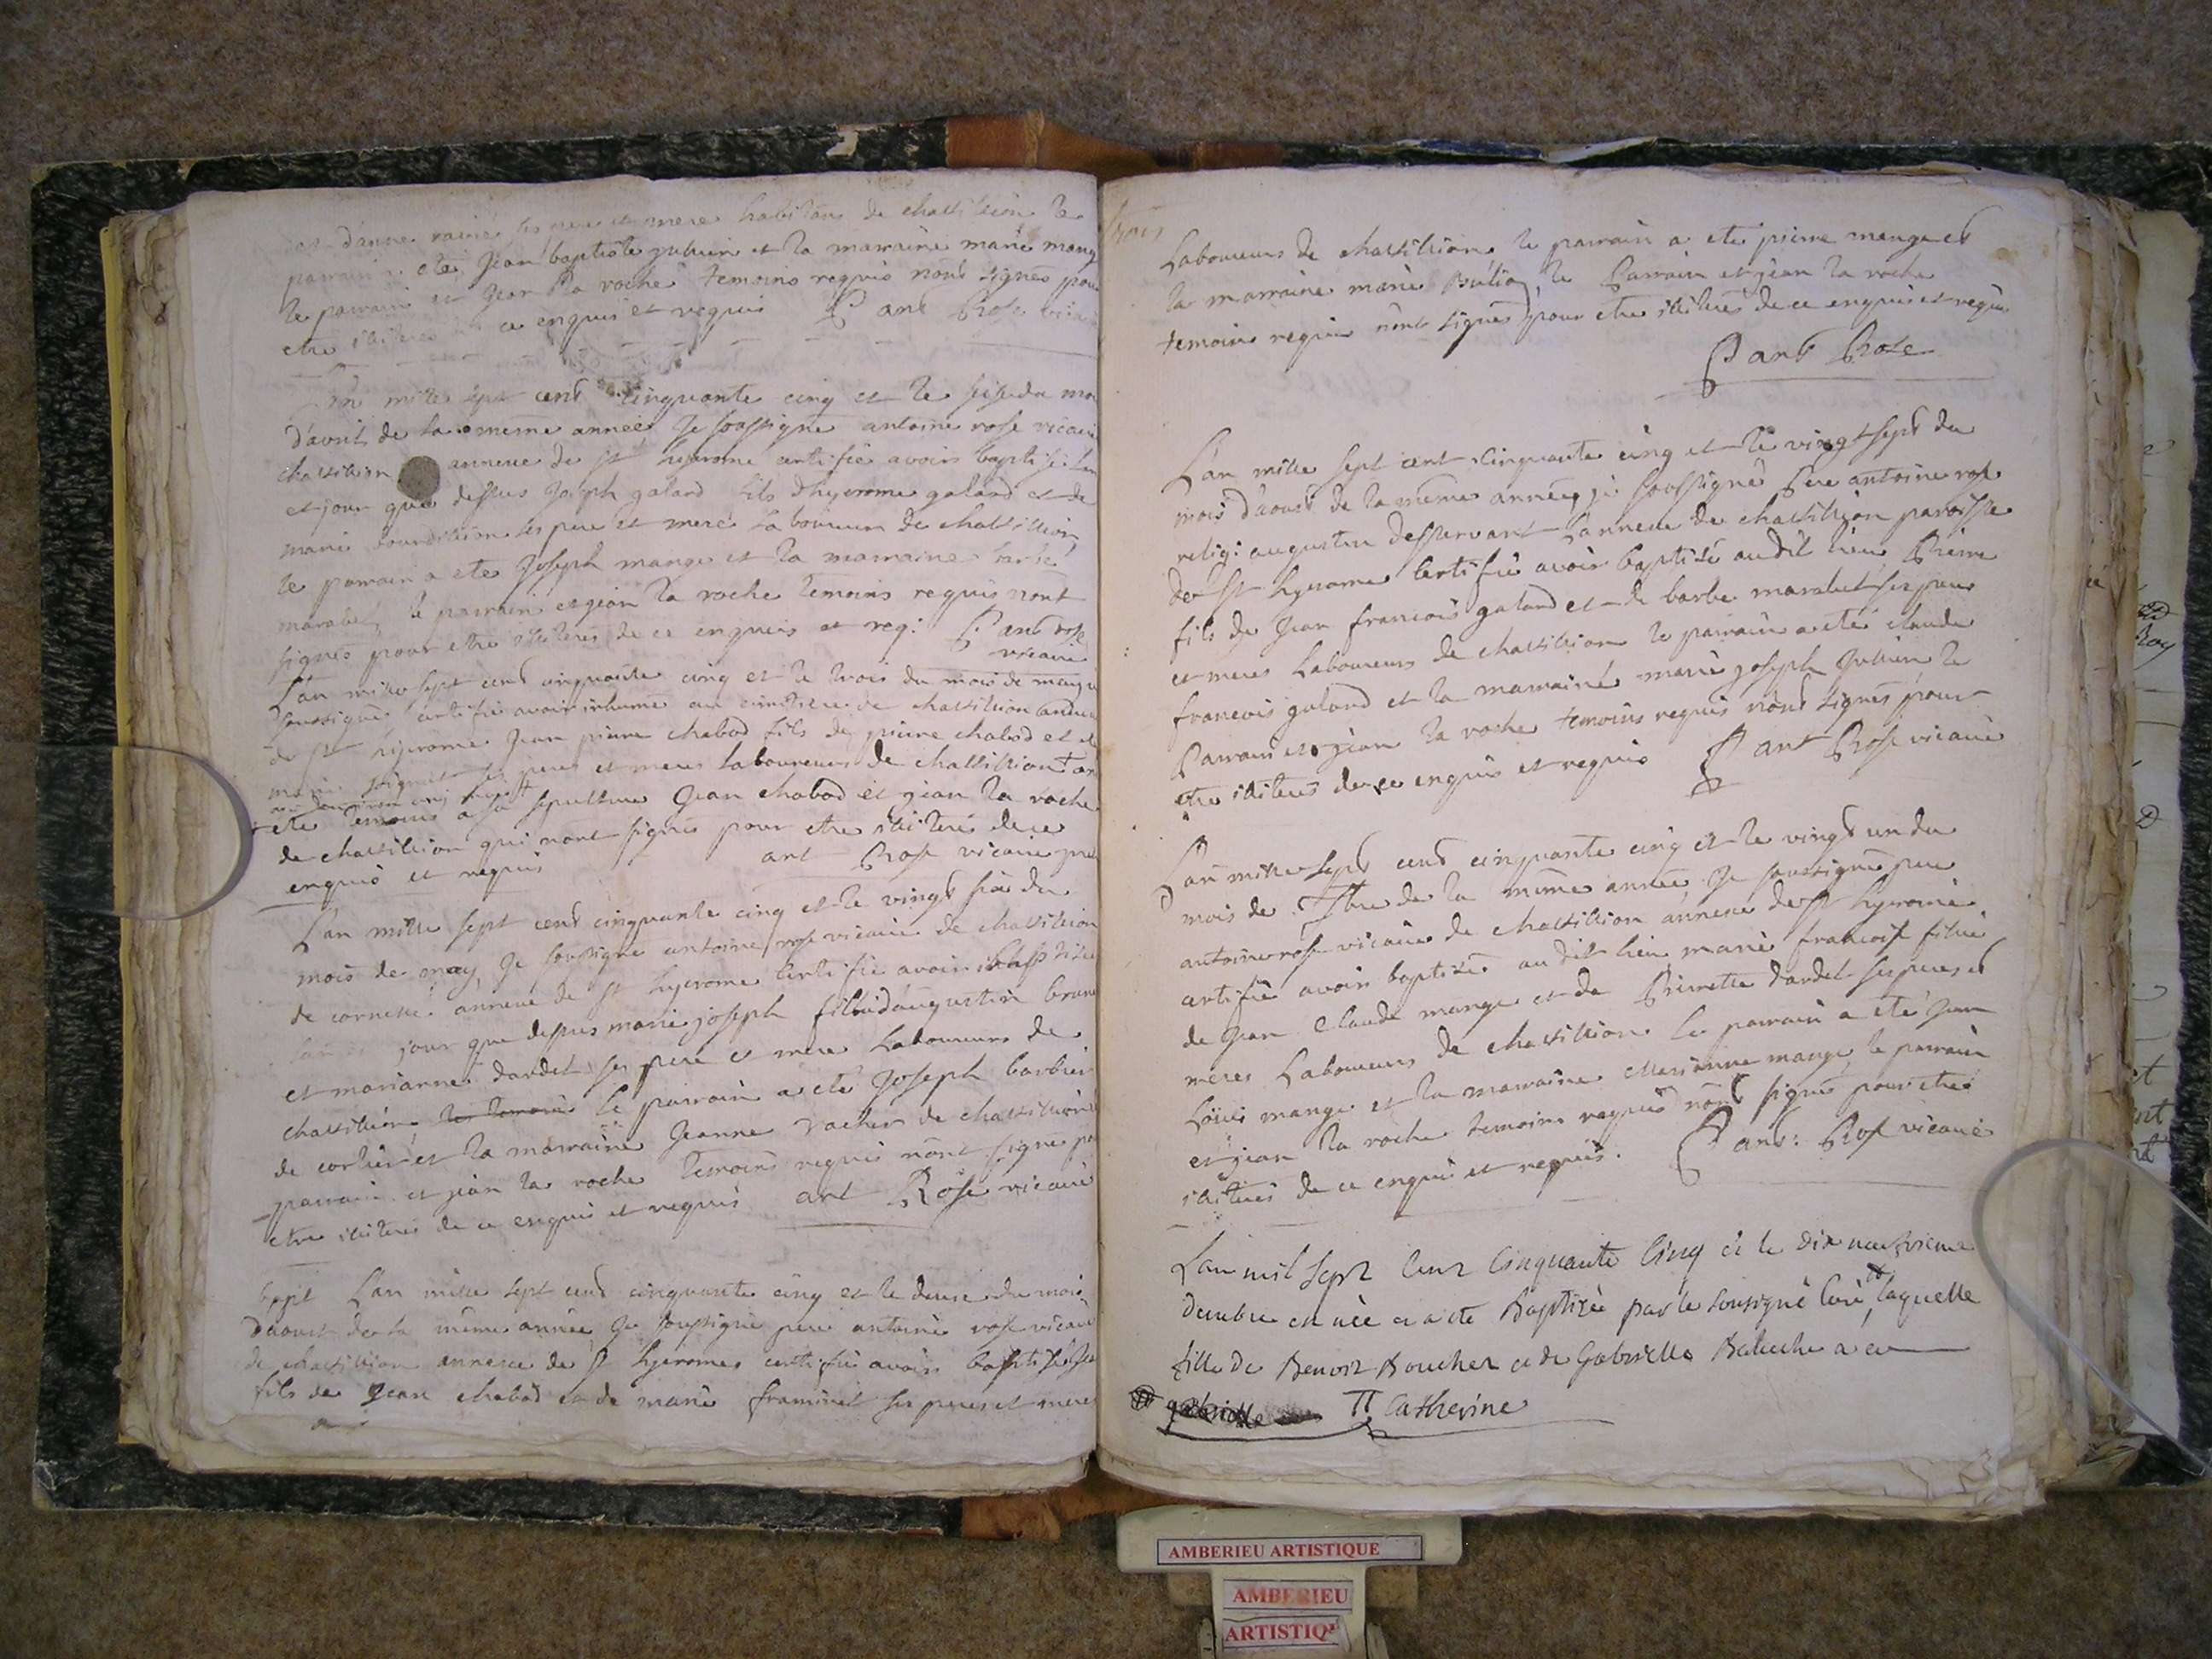 danne ses pere et mere habitans de chastillion le
parrain a eté Jean baptiste Jullien et la marraine marie mang
le parrain et Jean la roche temoins requis nont signes pour
etre illiteres de ce enquis et requis P ant Rose vicai
L'an mille sept cent cinquante cinq et le seise du moi
d'avril de la meme anneé Je soussigné antoine rose vicaire
chastillion annexe de st hyerome certifie avoir baptisé l'an
et jour que dessus Joseph galand fils d'hyerome galand et de
marie ses pere et mere laboureurs de chastillion
le parrain a eté Joseph mange et la marraine barbe
marabet, le parrain et jean la roche temoins requis nont
signes pour etre illiteres de ce enquis et req: P. ant rose
vicaire
L'an mille sept cent cinquante cinq et le trois du mois de may je
soussigné certifie avoir inhumé au cimitiere de chastillion annexe
de st hyerome Jean pierre chabod fils de pierre chabod et de
marie ses peres et meres laboureurs de chastillion
eté temoins a sa sepulture Jean chabod et jean la roche
de chastillion qui nont signés pour etre illiterés de ce
enquis et requis ant Rose vicaire
L'an mille sept cent cinquante cinq et le vingt six du
mois de may, Je soussigné antoine rose vicaire de chastillion
de cornelle annexe de st hyerome certifie avoir baptisée
l'an et jour que dessus marie joseph fille d'augustin brun
et marianne dardel ses pere et mere Laboureurs de
chastillion le parrain a eté Joseph barbier
de corlier et la marraine Jeanne vacher de chastillion
parrain et jean la roche temoins requis nont signé po
etre illiteres de ce enquis et requis ant Rose vicaire
bapt L'an mille sept cent cinquante cinq et le douse du mois
d'aoust de la même année Je soussigné pere antoine rose vicaire
de chastillion annexe de st hyerome certifie avoir baptisé
fils de Jean chabod et de marie framinet ses peres et meres
Laboureurs de chastillion le parrain a eté pierre mange et
la marraine marie le Parrain et jean la roche
temoins requis nont signes pour etre illiteres de ce enquis et requis
P ant Rose
L'an mille sept cent cinquante cinq et le vingt sept du
mois d'aoust de la même année, je soussigné Pere antoine rose
relig: augustin desservant l'annexe de chastillion paroisse
de st hyerome Certifie avoir baptisé audit lieu Pierre
fils de Jean francois galand et de barbe marabet ses peres
et meres Laboureurs de chastillion le parrain a eté claude
francois galand et la marraine marie joseph Jullien le
Parrain et jean la roche temoins requis nont signes pour
etre illiteres de ce enquis et requis P ant Rose vicaire
L'an mille sept cent cinquante cinq et le vingt un du
mois de 7bre de la même année Je soussigné pere
antoine rose vicaire de chastillion annexe de st hyerome
certifie avoir baptisée au dit lieu marie francoise fille
de Jean Claude mange et de Pierrette dardel ses peres et
meres Laboureurs de chastillion le parrain a eté Jean
Loüis mange et la marraine Marianne mange, le parrain
et jean la roche temoins requis nont signé pour etre
illiteres de ce enquis et requis. P ant: Rose vicaire
L'an mil sept cent Cinquante Cinq et le dix neuf
decembre est née et a eté Baptizée par le sousigné Curé, laquelle
fille de Benoit Boucher et de Gabrielle Baluche a eu
gabrielle Catherine
AMBERIEU ARTISTIQUE
AMBERIEU
ARTISTIQ